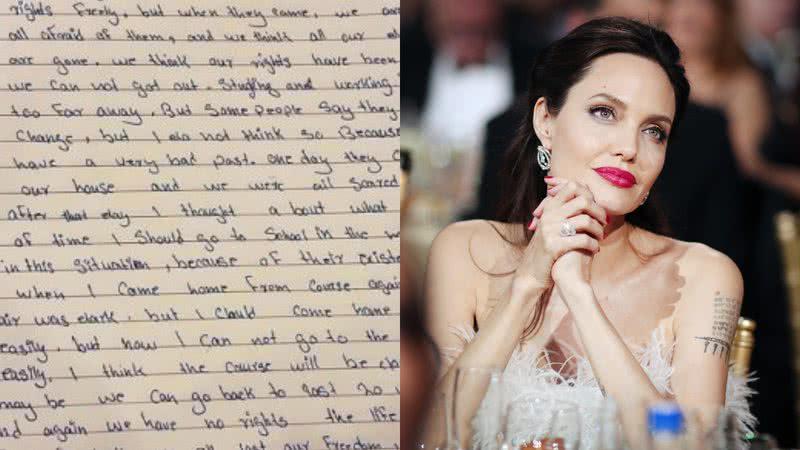 rights freely, but when they came, we are
all afraid of them, and we think all our
are gone. we think our rights have been
we can not got out. Studing and working
too far away. But Some people say they
Change, but I do not think so Because
have a very bad past. one day they
our house and we were all scared
after that day I thought a bout what
of time I Should go to School in the
in this situation, because of their
when I came home from course again
air was dark, but I Cluld come home
easily, but now I can not go to the
easily, I think the course will be
may be we can go back to last 20
and again we have no rights the life
lost our freedom